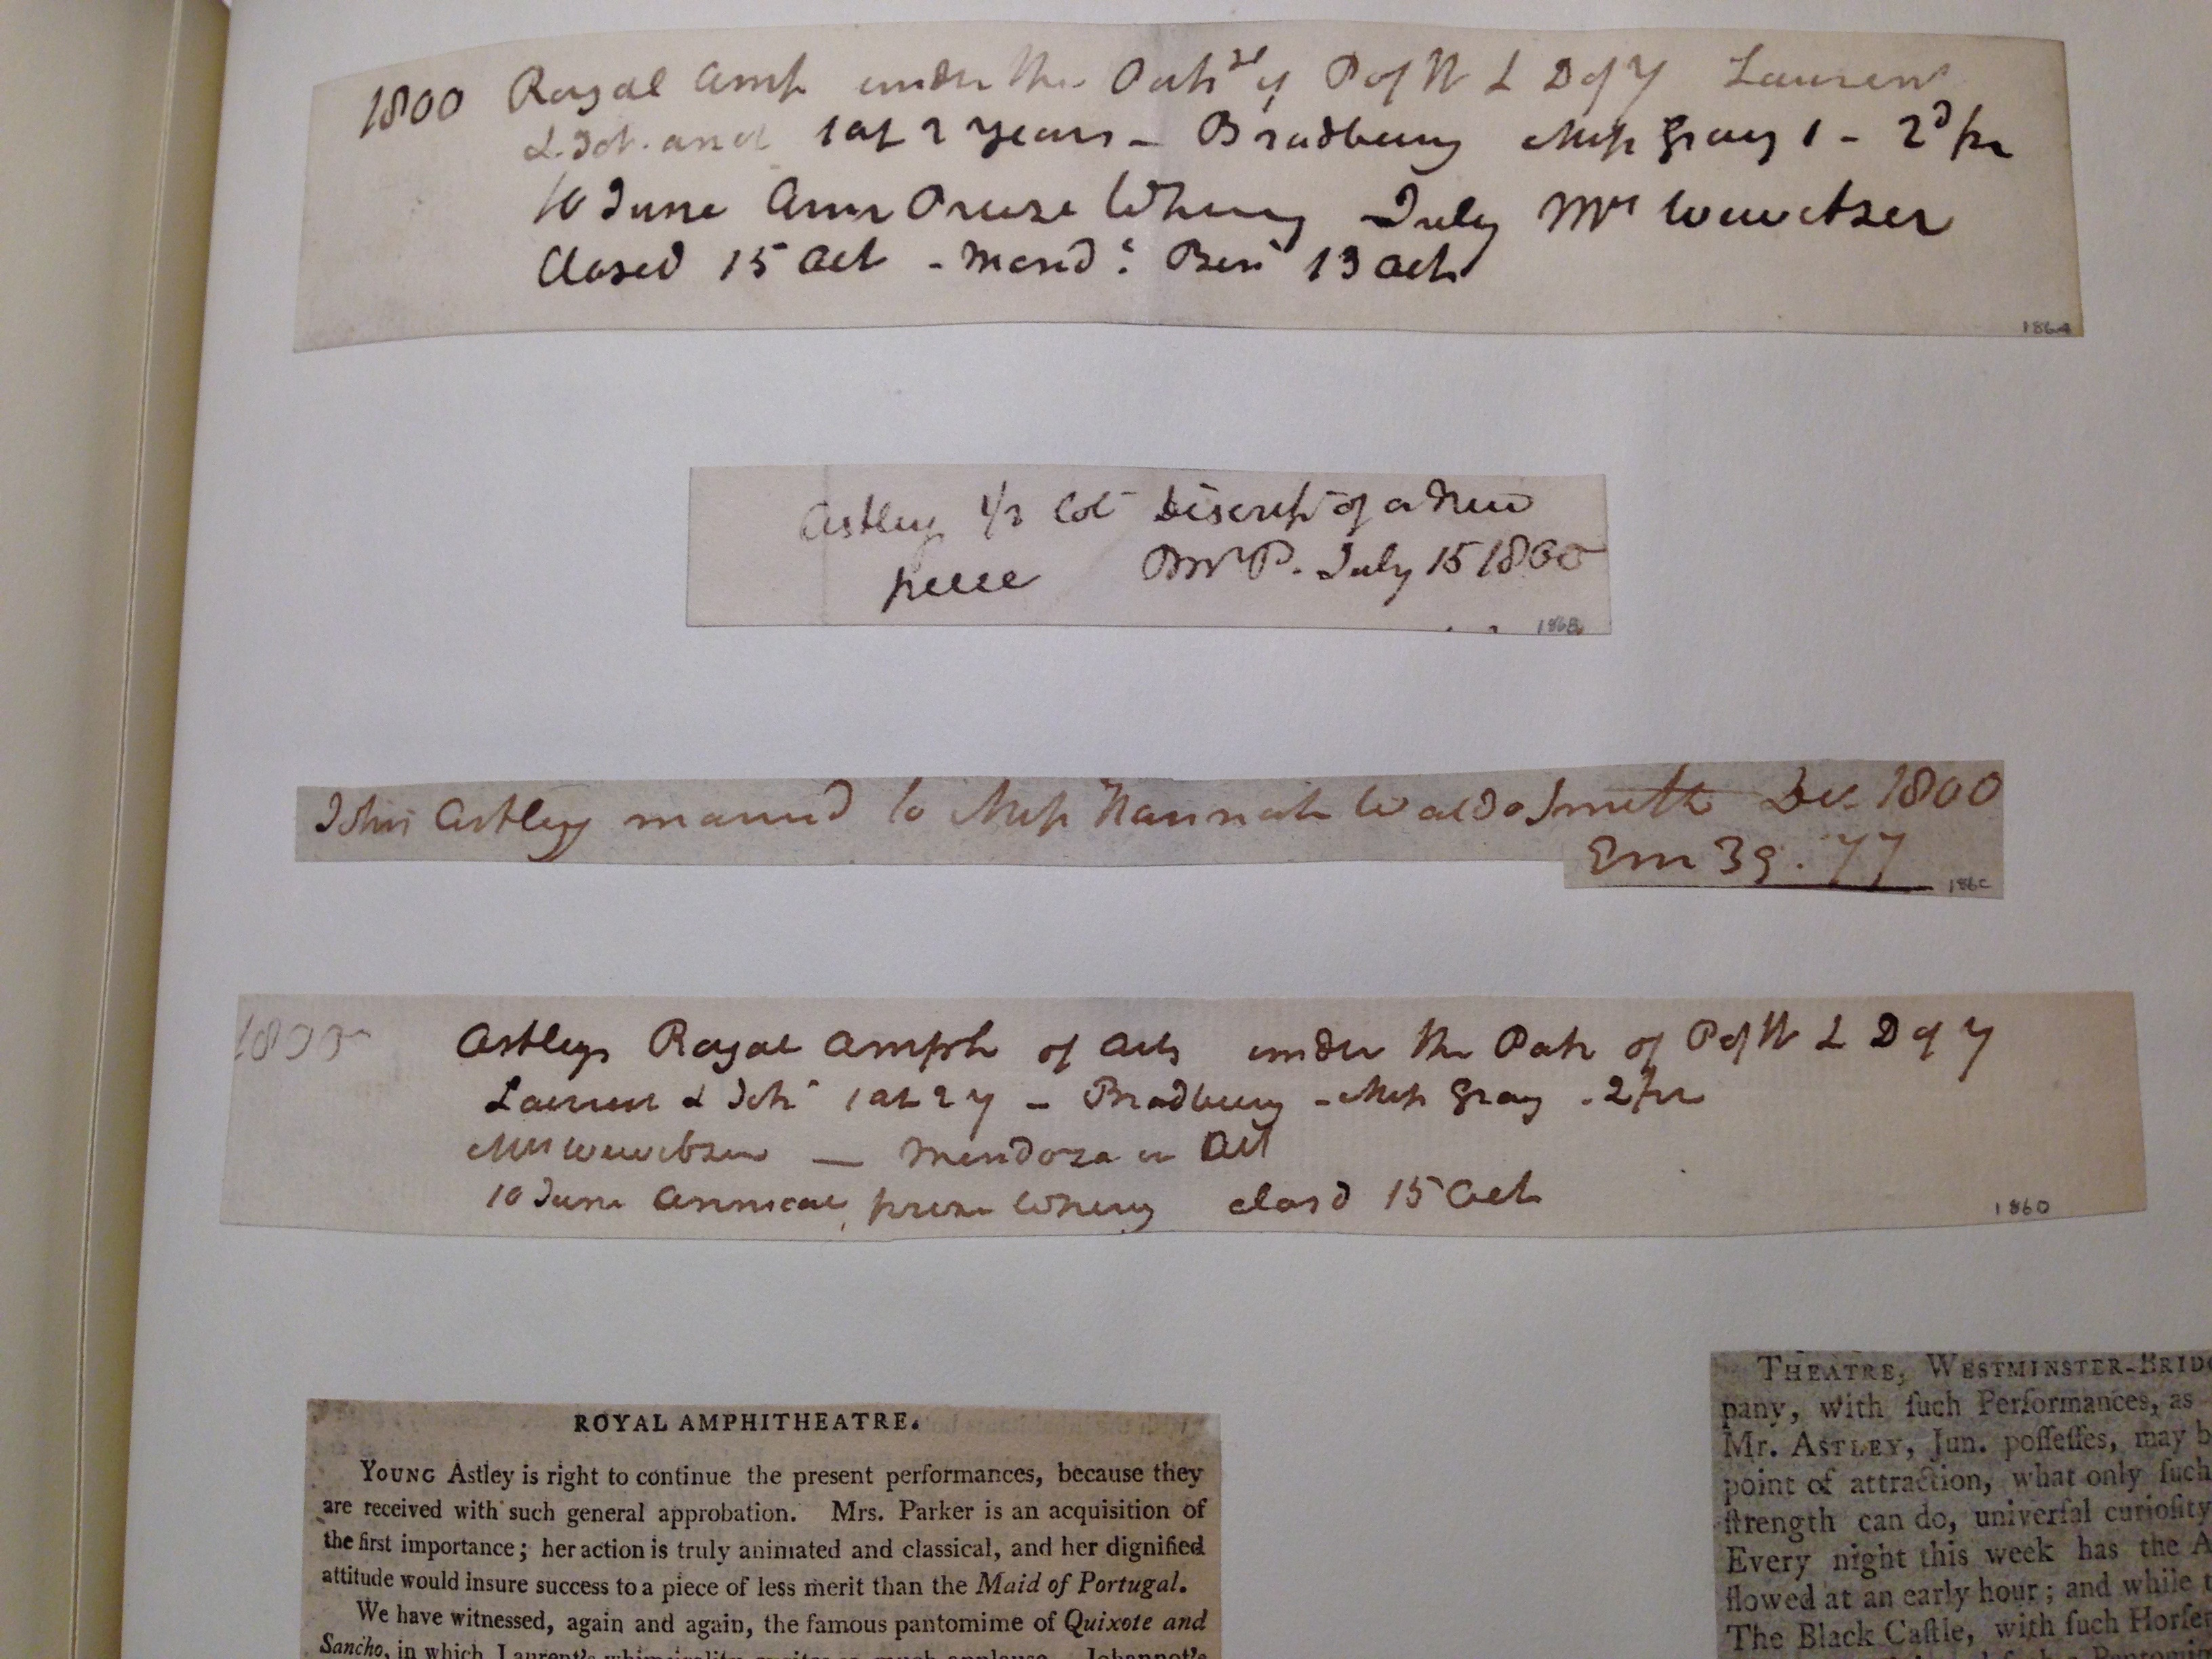 1800 Royal Amp under the Patr of P of W & D of Y Laurent
& Joh. and 1 at 2 years - Bradbury Miss Gray 1 - 2d pr
10 June Ann Prize Wherry July Mrs Wewitzer
Closed 15 Oct - Mend: Ben 13 Oct
186A
Astley 1/2 Col Discript of a New
piece July 15 1800
186B
John Astley married to Miss Hannah Waldo Smith Dec 1800
Em 39. 77
186C
1800 Astleys Royal Amph of Arts under the Patr of P of W & D of Y
Laurent & Joh 1 at 2 y - Bradbury - Miss Gray - 2 pr
Mrs Wewitzer — Mendoza in Oct
10 June Annual prize Wherry closd 15 Oct
186D
ROYAL AMPHITHEATRE.
YOUNG Astley is right to continue the present performances, because they
are received with such general approbation. Mrs. Parker is an acquisition of
the first importance; her action is truly animated and classical, and her dignified
attitude would insure success to a piece of less merit than the Maid of Portugal.
We have witnessed, again and again, the famous pantomime of Quixote and
Sancho, in which Laurent's whimsicality excites so much applause. Johannot's
THEATRE, WESTMINSTER-BRIDG
pany, with ſuch Performances, as
Mr. ASTLEY, Jun. poſſeſſes, may b
point of attraction, what only ſuch
ſtrength can do, univerſal curioſity
Every night this week has the A
flowed at an early hour; and while t
The Black Caſtle, with ſuch Horſe